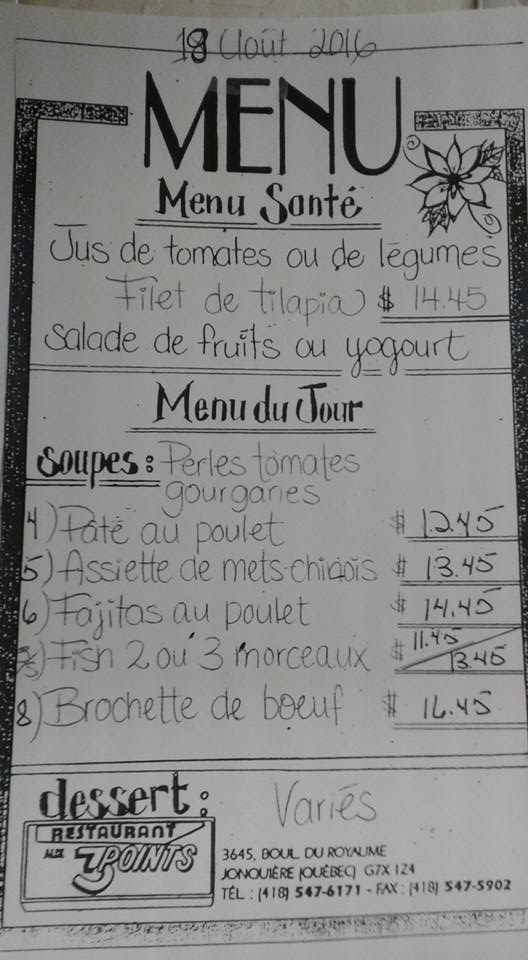 18 Août 2016
MENU
Menu Santé
Jus de tomates ou de légumes
Filet de tilapia $ 14.45
Salade de fruits ou yogourt
Menu du Jour
soupes: Perles tomates
gourganes
4) Pâté au poulet $ 12.45
5) Assiette de mets chinois $ 13.45
6) Fajitas au poulet $ 14.45
Fish 2 ou 3 morceaux $ 11.45 / 13.45
8) Brochette de boeuf $ 16.45
dessert: Variés
RESTAURANT
AUX 3 POINTS
3645, BOUL. DU ROYAUME
JONQUIÈRE (QUÉBEC) G7X 1Z4
TÉL : (418) 547-6171 - FAX : (418) 547-5902